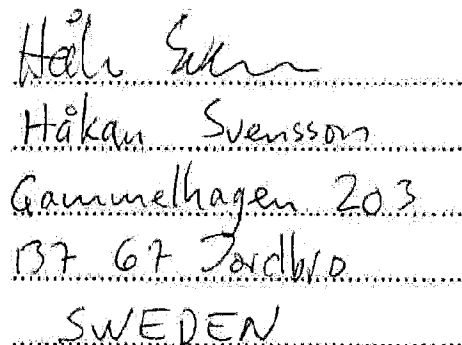 Håkan Svensson
Gammelhagen 203
137 67 Jordbro
SWEDEN